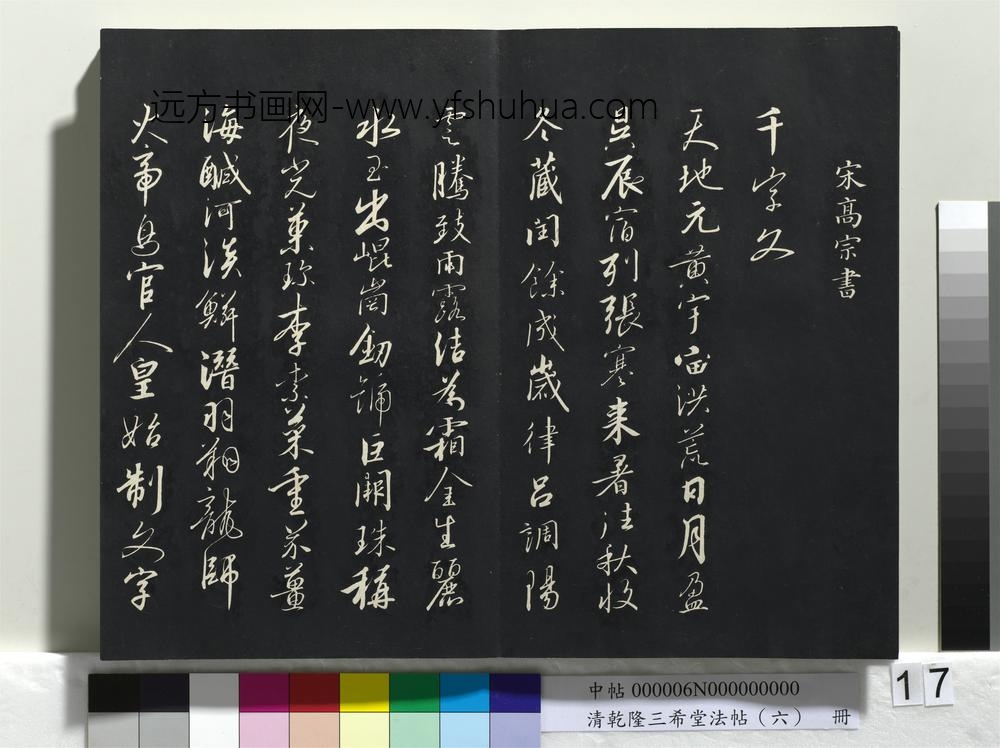 宋高宗書
千字文
天地元黄宇宙洪荒日月盈
昃辰宿列張寒来暑往秋收
冬藏閏餘成歲律呂調陽
雲騰致雨露結為霜金生麗
水玉出崐崗劒號巨闕珠稱
夜光菓珎李柰菜重芥薑
海鹹河淡鱗潛羽翔龍師
火帝鳥官人皇始制文字
远方书画网-www.yfshuhua.com
中帖 000006N000000000
清乾隆三希堂法帖（六） 冊
17